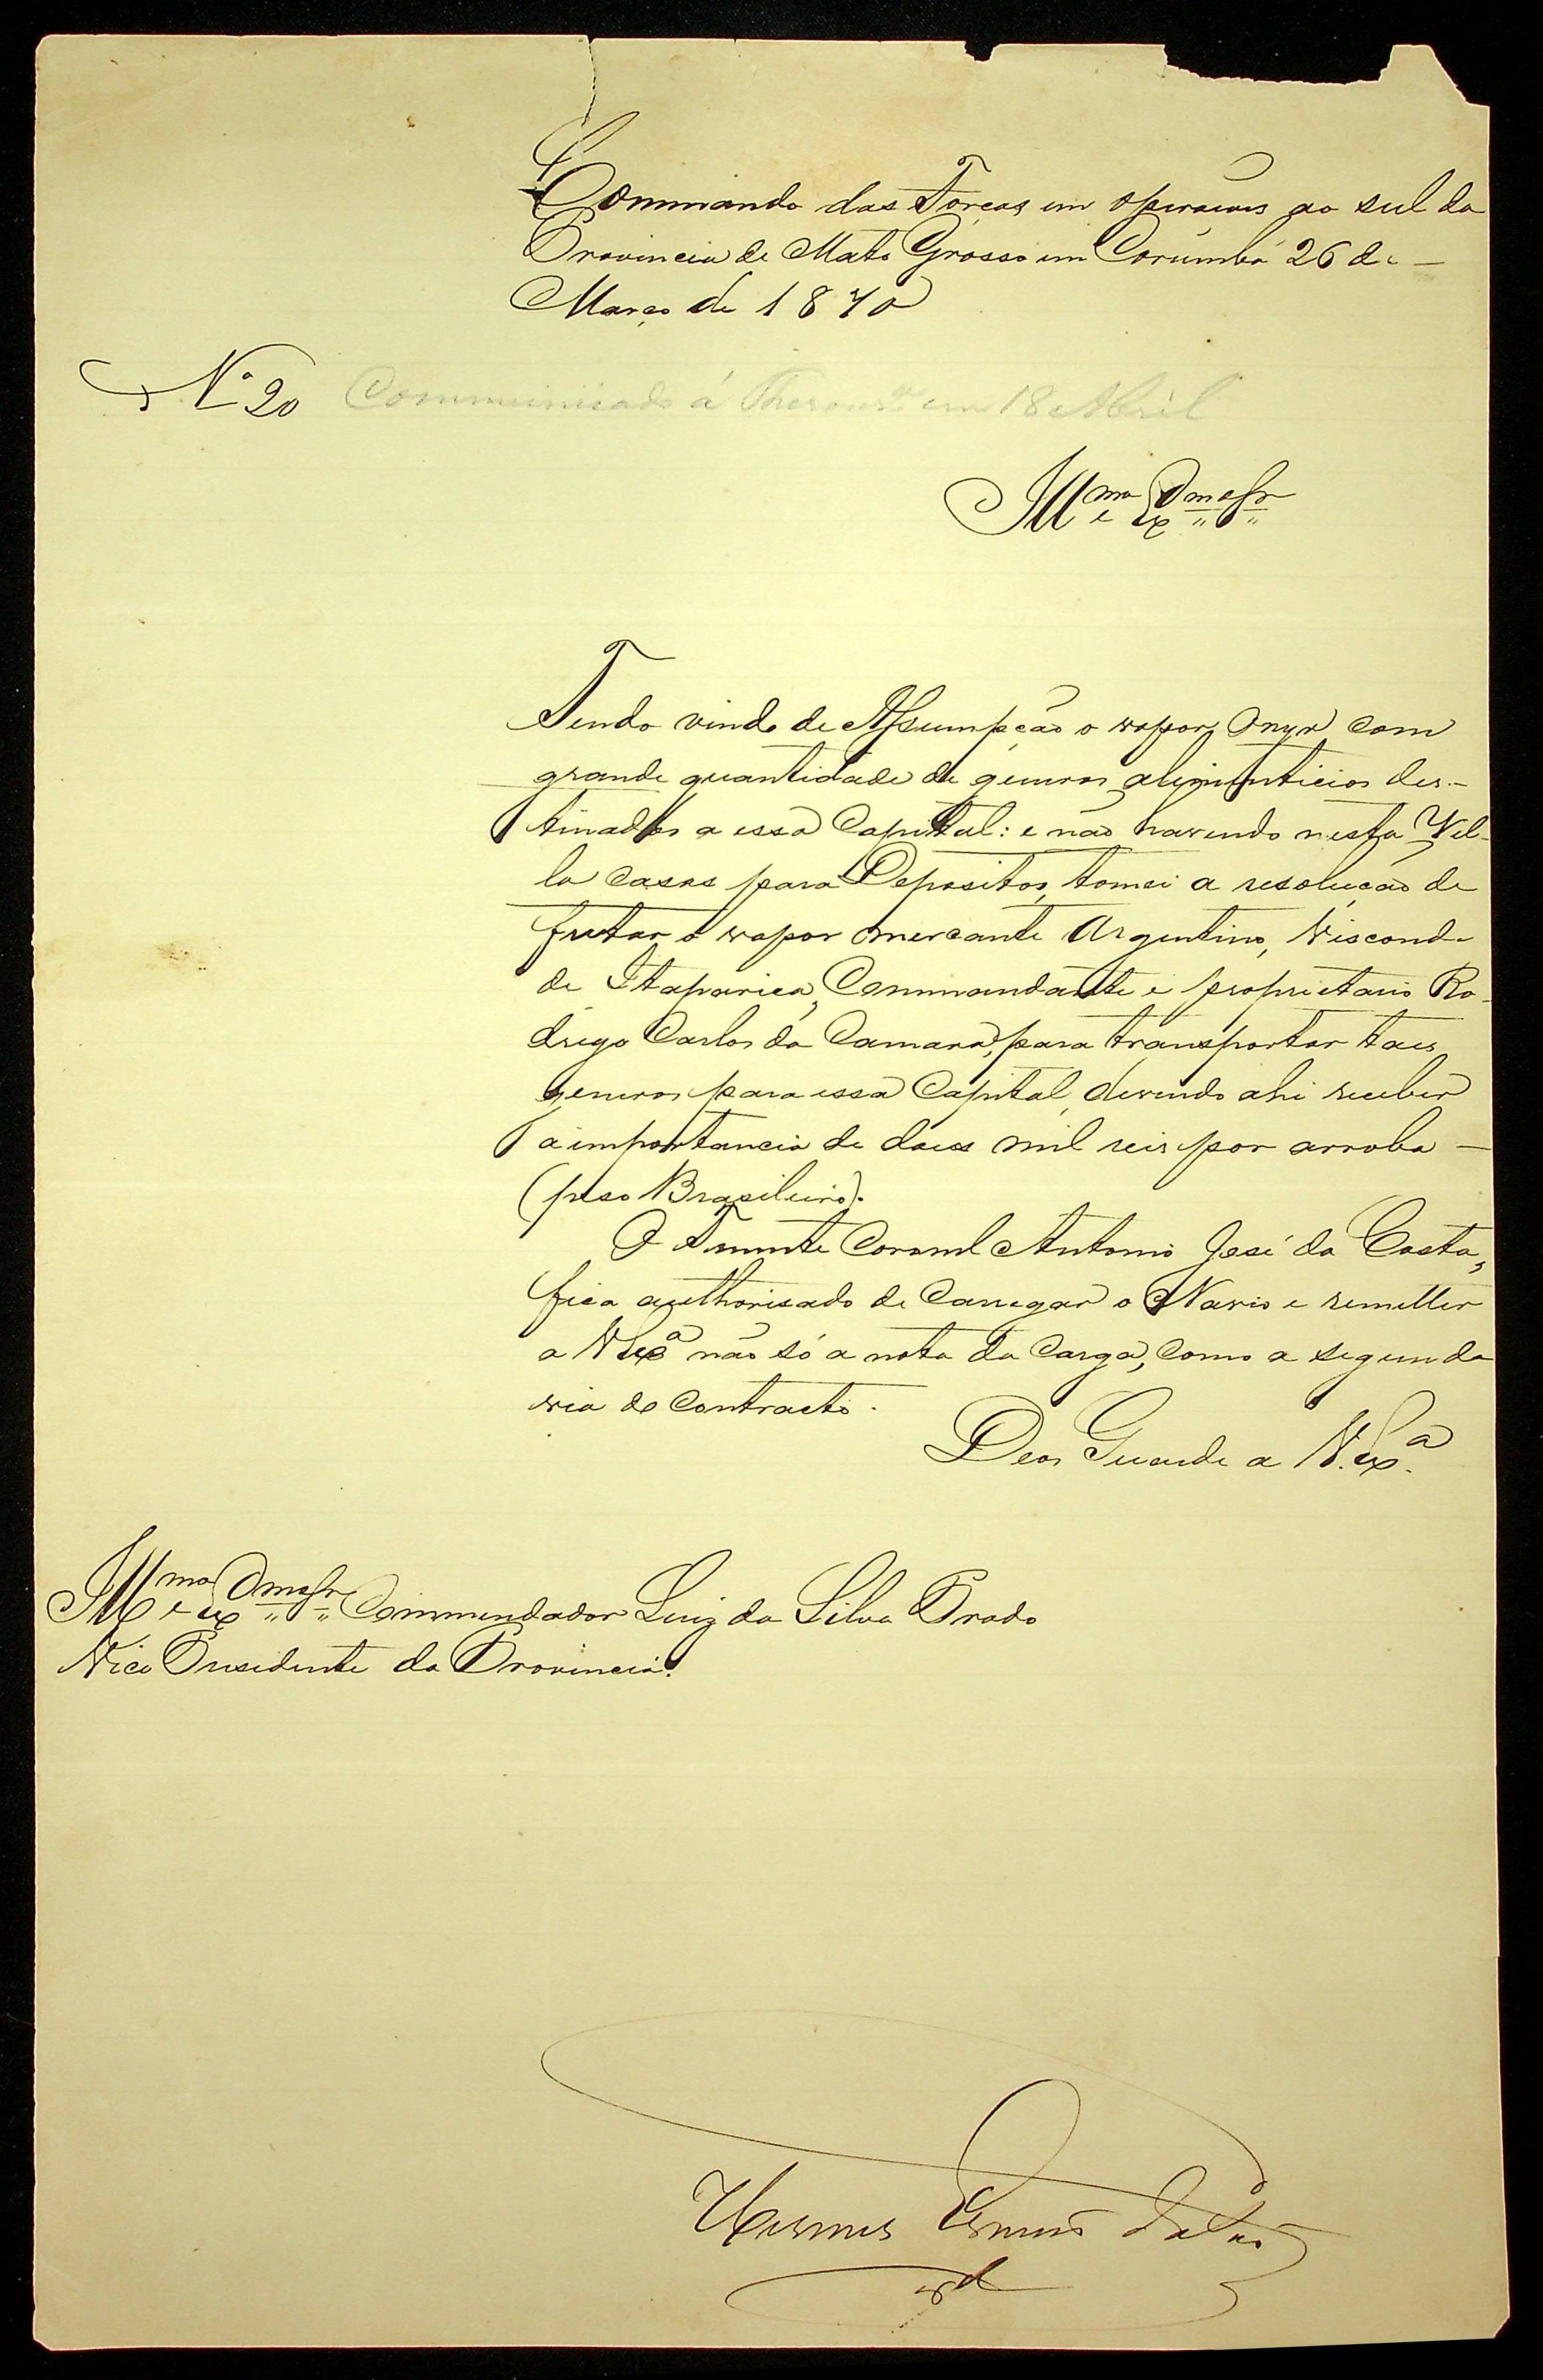 Commando das Forças em operaçoes ao sul da
Provincia de Mato Grosso em Corumbá 26 de
Março de 1870
Nº 20 Communicado á Thesourª em 18 Abril
Illmo e Exmo Snr
Tendo vindo de Assumpção o vapor Onyx com
grande quantidade de generos alimenticios des-
tinados a essa Capital: e não havendo nesta Vil-
la casas para Depositos, tomei a resolução de
fretar o vapor mercante Argentino, Visconde
de Itaparica, Commandante e proprietario Ro-
drigo Carlos da Camara, para transportar taes
generos para essa Capital, devendo ahi receber
a importancia de dous mil reis por arroba —
(peso Brasileiro).
O Tenente Coronel Antonio José da Costa,
fica authorisado de carregar o Navio e remetter
a V Exª não só a nota da carga, como a segunda
via do contracto.
Deos Guarde a V. Exª.
Illmo e Exmo Snr Commendador Luiz da Silva Prado
Vice Presidente da Provincia.
Hermes Ernesto da Fonca